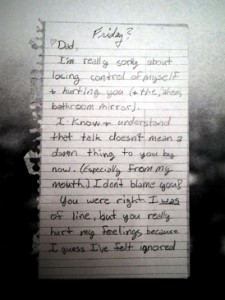 Friday?
Dad,
I'm really sorry about
losing control of myself
+ hurting you (+ the, ahem,
bathroom mirror).
I know + understand
that talk doesn't mean a
damn thing to you by
now. (Especially from my
mouth.) I dont blame you!
You were right I was
of line, but you really
hurt my feelings because
I guess I've felt ignored